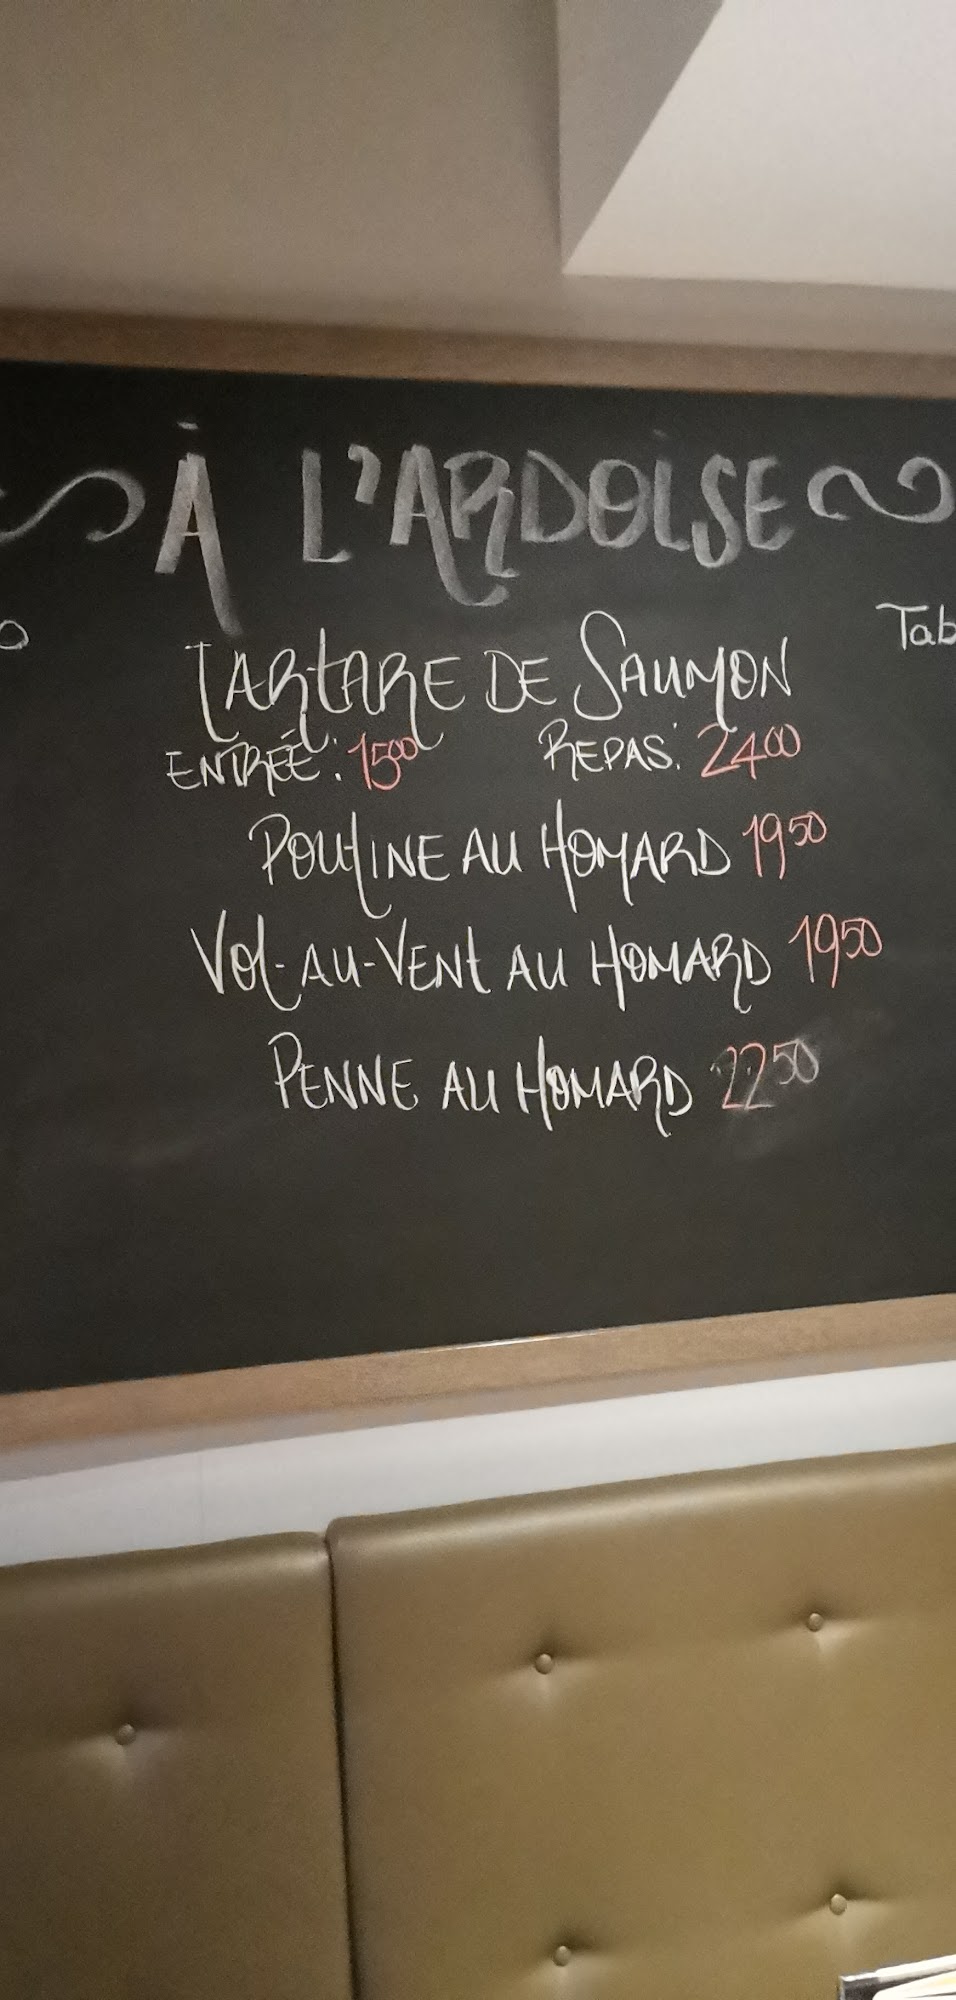 À L'ARDOISE
Tab
TARTARE DE SAUMON
ENTRÉE: 15⁰⁰ REPAS: 24⁰⁰
POUTINE AU HOMARD 19⁵⁰
VOL-AU-VENT AU HOMARD 19⁵⁰
PENNE AU HOMARD 22⁵⁰